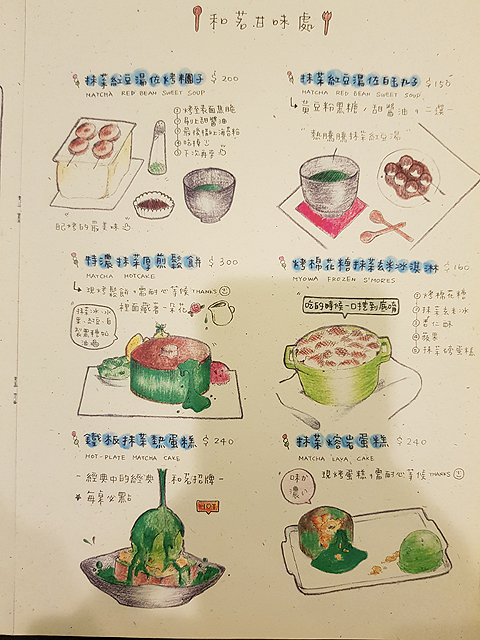 和茗甘味處
抹茶紅豆湯佐烤糰子 $200
MATCHA RED BEAN SWEET SOUP
①烤至表面焦脆
②刷上甜醬油
③最後撒上海苔粉
④吃掉
⑤下次再來
配烤的最美味
抹茶紅豆湯佐白玉丸子 $150
MATCHA RED BEAN SWEET SOUP
黃豆粉黑糖，甜醬油，二選一
"熱騰騰抹茶紅豆湯"
特濃抹茶厚煎鬆餅 $300
MATCHA HOTCAKE
現烤鬆餅，需耐心等候 THANKS
裡面藏著一朵花
烤棉花糖抹茶玄米冰淇淋 $160
MYOWA FROZEN S'MORES
吃的時候一口挖到底唷
①烤棉花糖
②抹茶玄米冰
③杏仁酥
④蘋果
⑤抹茶蜂蛋糕
鐵板抹茶熱蛋糕 $240
HOT-PLATE MATCHA CAKE
-經典中的經典 和茗招牌-
每桌必點
HOT!
抹茶熔岩蛋糕 $240
MATCHA LAVA CAKE
現烤蛋糕，需耐心等候 THANKS
味が濃い